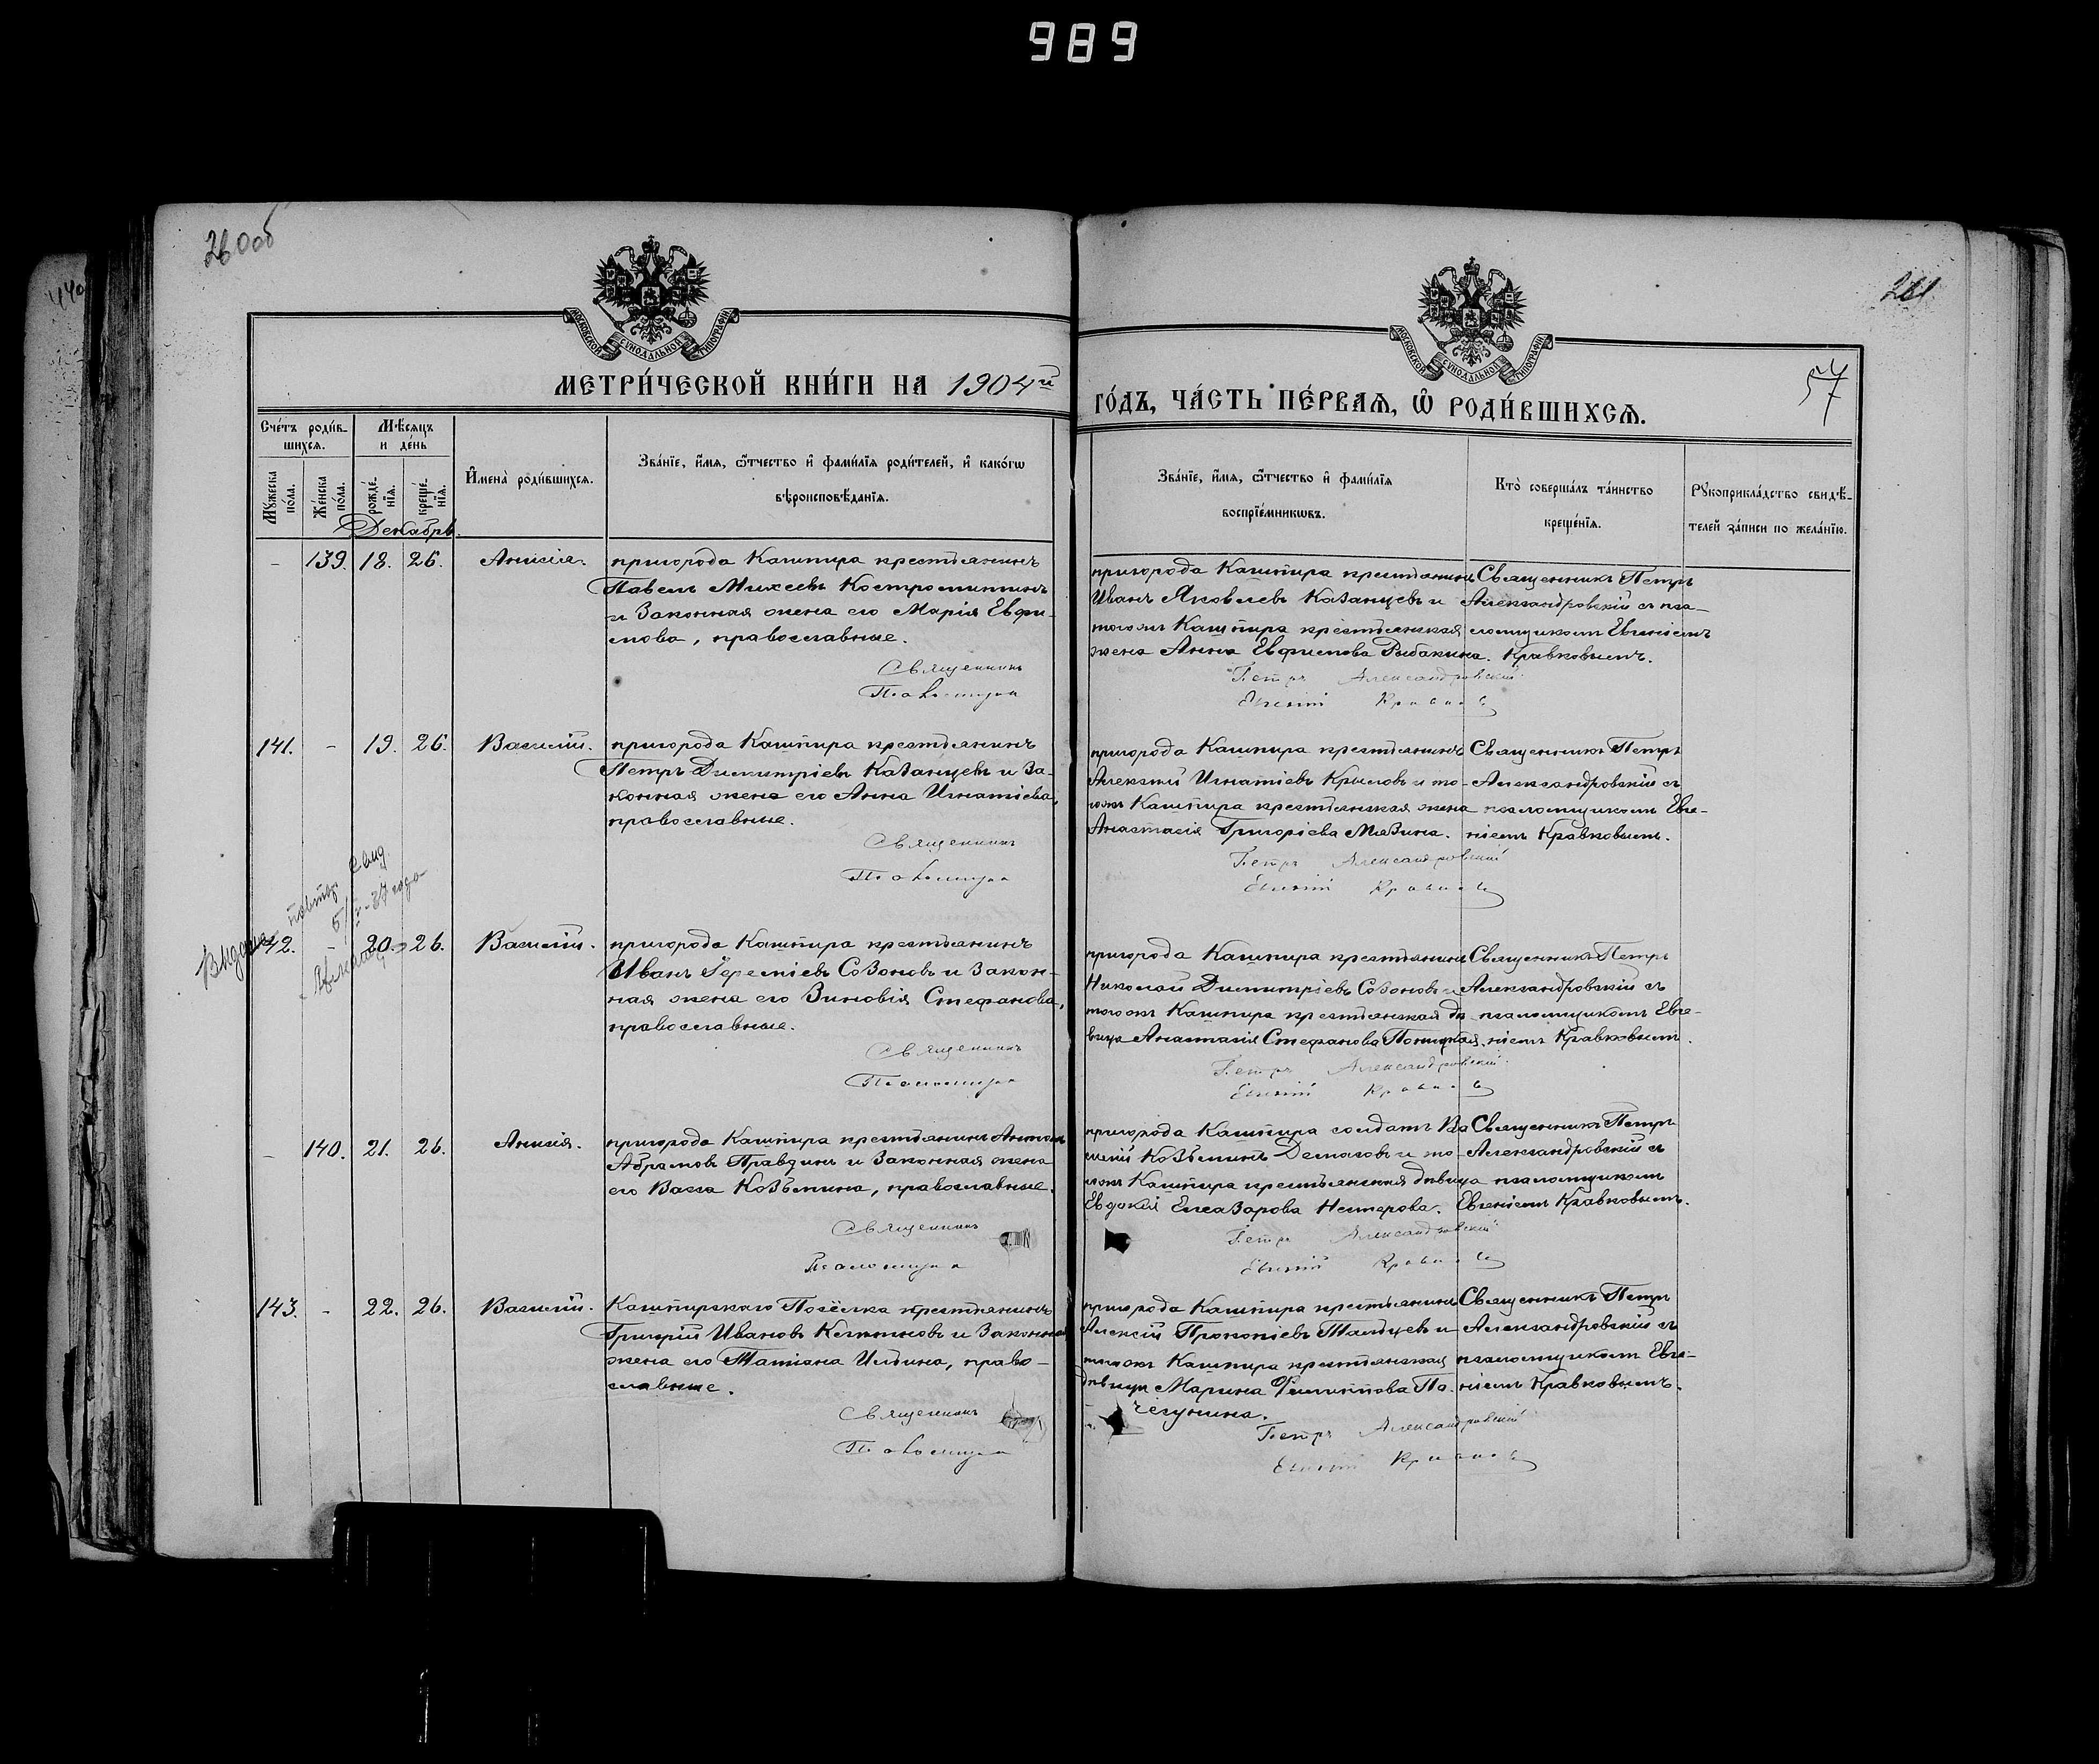 989
260об
261
57
МОСКОВСКОЙ СУНОДАЛЬНОЙ ТИПОГРАФІИ
МОСКОВСКОЙ СУНОДАЛЬНОЙ ТИПОГРАФІИ
МЕТРИ́ЧЕСКОЙ КНИ́ГИ НА 1904й
ГО́ДЪ, ЧА́СТЬ ПЕ́РВАѦ, Ѡ РОДИ́ВШИХСѦ.
Сче́тъ роди́в-
шихся.
Мꙋжеска по́ла.
Же́нска по́ла.
Мѣ́сяцъ
и де́нь
рожде́нїя.
креще́нїя.
И҆мена̀ роди́вшихся.
Зва́нїе, и҆́мя, ѻ҆́тчество и҆ фами́лїя роди́телей, и҆ како́гѡ
вѣроисповѣ́данїя.
Зва́нїе, и҆́мя, ѻ҆́тчество и҆ фами́лїя
воспрїе́мникѡвъ.
Кто̀ соверша́лъ та́инство
креще́нїя.
Рꙋкоприкла́дство свидѣ́-
телей за́писи по жела́нїю.
Декабрь.
- 139. 18. 26. Анисія.
пригорода Кашпира крестьянинъ
Павелъ Михеевъ Костромитинъ
и законная жена его Марія Евфи-
мова, православные.
Священникъ
Псаломщикъ
пригорода Кашпира крестьянинъ
Иванъ Яковлевъ Казанцевъ и
тогожъ Кашпира крестьянская
жена Анна Евфимова Рыбакина.
Петръ Александровскій
Евгеній Кравковъ
Священникъ Петръ
Александровскій съ пса-
ломщикомъ Евгеніемъ
Кравковымъ.
141. - 19. 26. Василій.
пригорода Кашпира крестьянинъ
Петръ Димитріевъ Казанцевъ и за-
конная жена его Анна Игнатіева,
православные.
Священникъ
Псаломщикъ
пригорода Кашпира крестьянинъ
Алексій Игнатіевъ Крыловъ и то-
гожъ Кашпира крестьянская жена
Анастасія Григоріева Мязина.
Петръ Александровскій
Евгеній Кравковъ
Священникъ Петръ
Александровскій съ
псаломщикомъ Евге-
ніемъ Кравковымъ.
Выдано повтор. свид.
142. - 20. 26. Василій.
пригорода Кашпира крестьянинъ
Иванъ Іереміевъ Созоновъ и закон-
ная жена его Зиновія Стефанова,
православные.
Священникъ
Псаломщикъ
пригорода Кашпира крестьянинъ
Николай Димитріевъ Созоновъ и
тогожъ Кашпира крестьянская дѣ-
вица Анастасія Стефанова
Петръ Александровскій
Евгеній Кравковъ
Священникъ Петръ
Александровскій съ
псаломщикомъ Евге-
ніемъ Кравковымъ.
- 140. 21. 26. Анисія.
пригорода Кашпира крестьянинъ Антонъ
Абрамовъ Правдинъ и законная жена
его Васса Козьмина, православные.
Священникъ
Псаломщикъ
пригорода Кашпира солдатъ Ва-
силій Козьминъ Демоловъ и то-
гожъ Кашпира крестьянская дѣвица
Евдокія Елеазарова Нестерова.
Петръ Александровскій
Евгеній Кравковъ
Священникъ Петръ
Александровскій съ
псаломщикомъ
Евгеніемъ Кравковымъ.
143. - 22. 26. Василій.
Кашпирскаго Посёлка крестьянинъ
Григорій Ивановъ и законная
жена его Татіана Ильина, право-
славные.
Священникъ
Псаломщикъ
пригорода Кашпира крестьянинъ
Алексій Прокопіевъ Тальцевъ и
тогожъ Кашпира крестьянская
дѣвица Марина Филиппова По-
чегунина.
Петръ Александровскій
Евгеній Кравковъ
Священникъ Петръ
Александровскій съ
псаломщикомъ Евге-
ніемъ Кравковымъ.